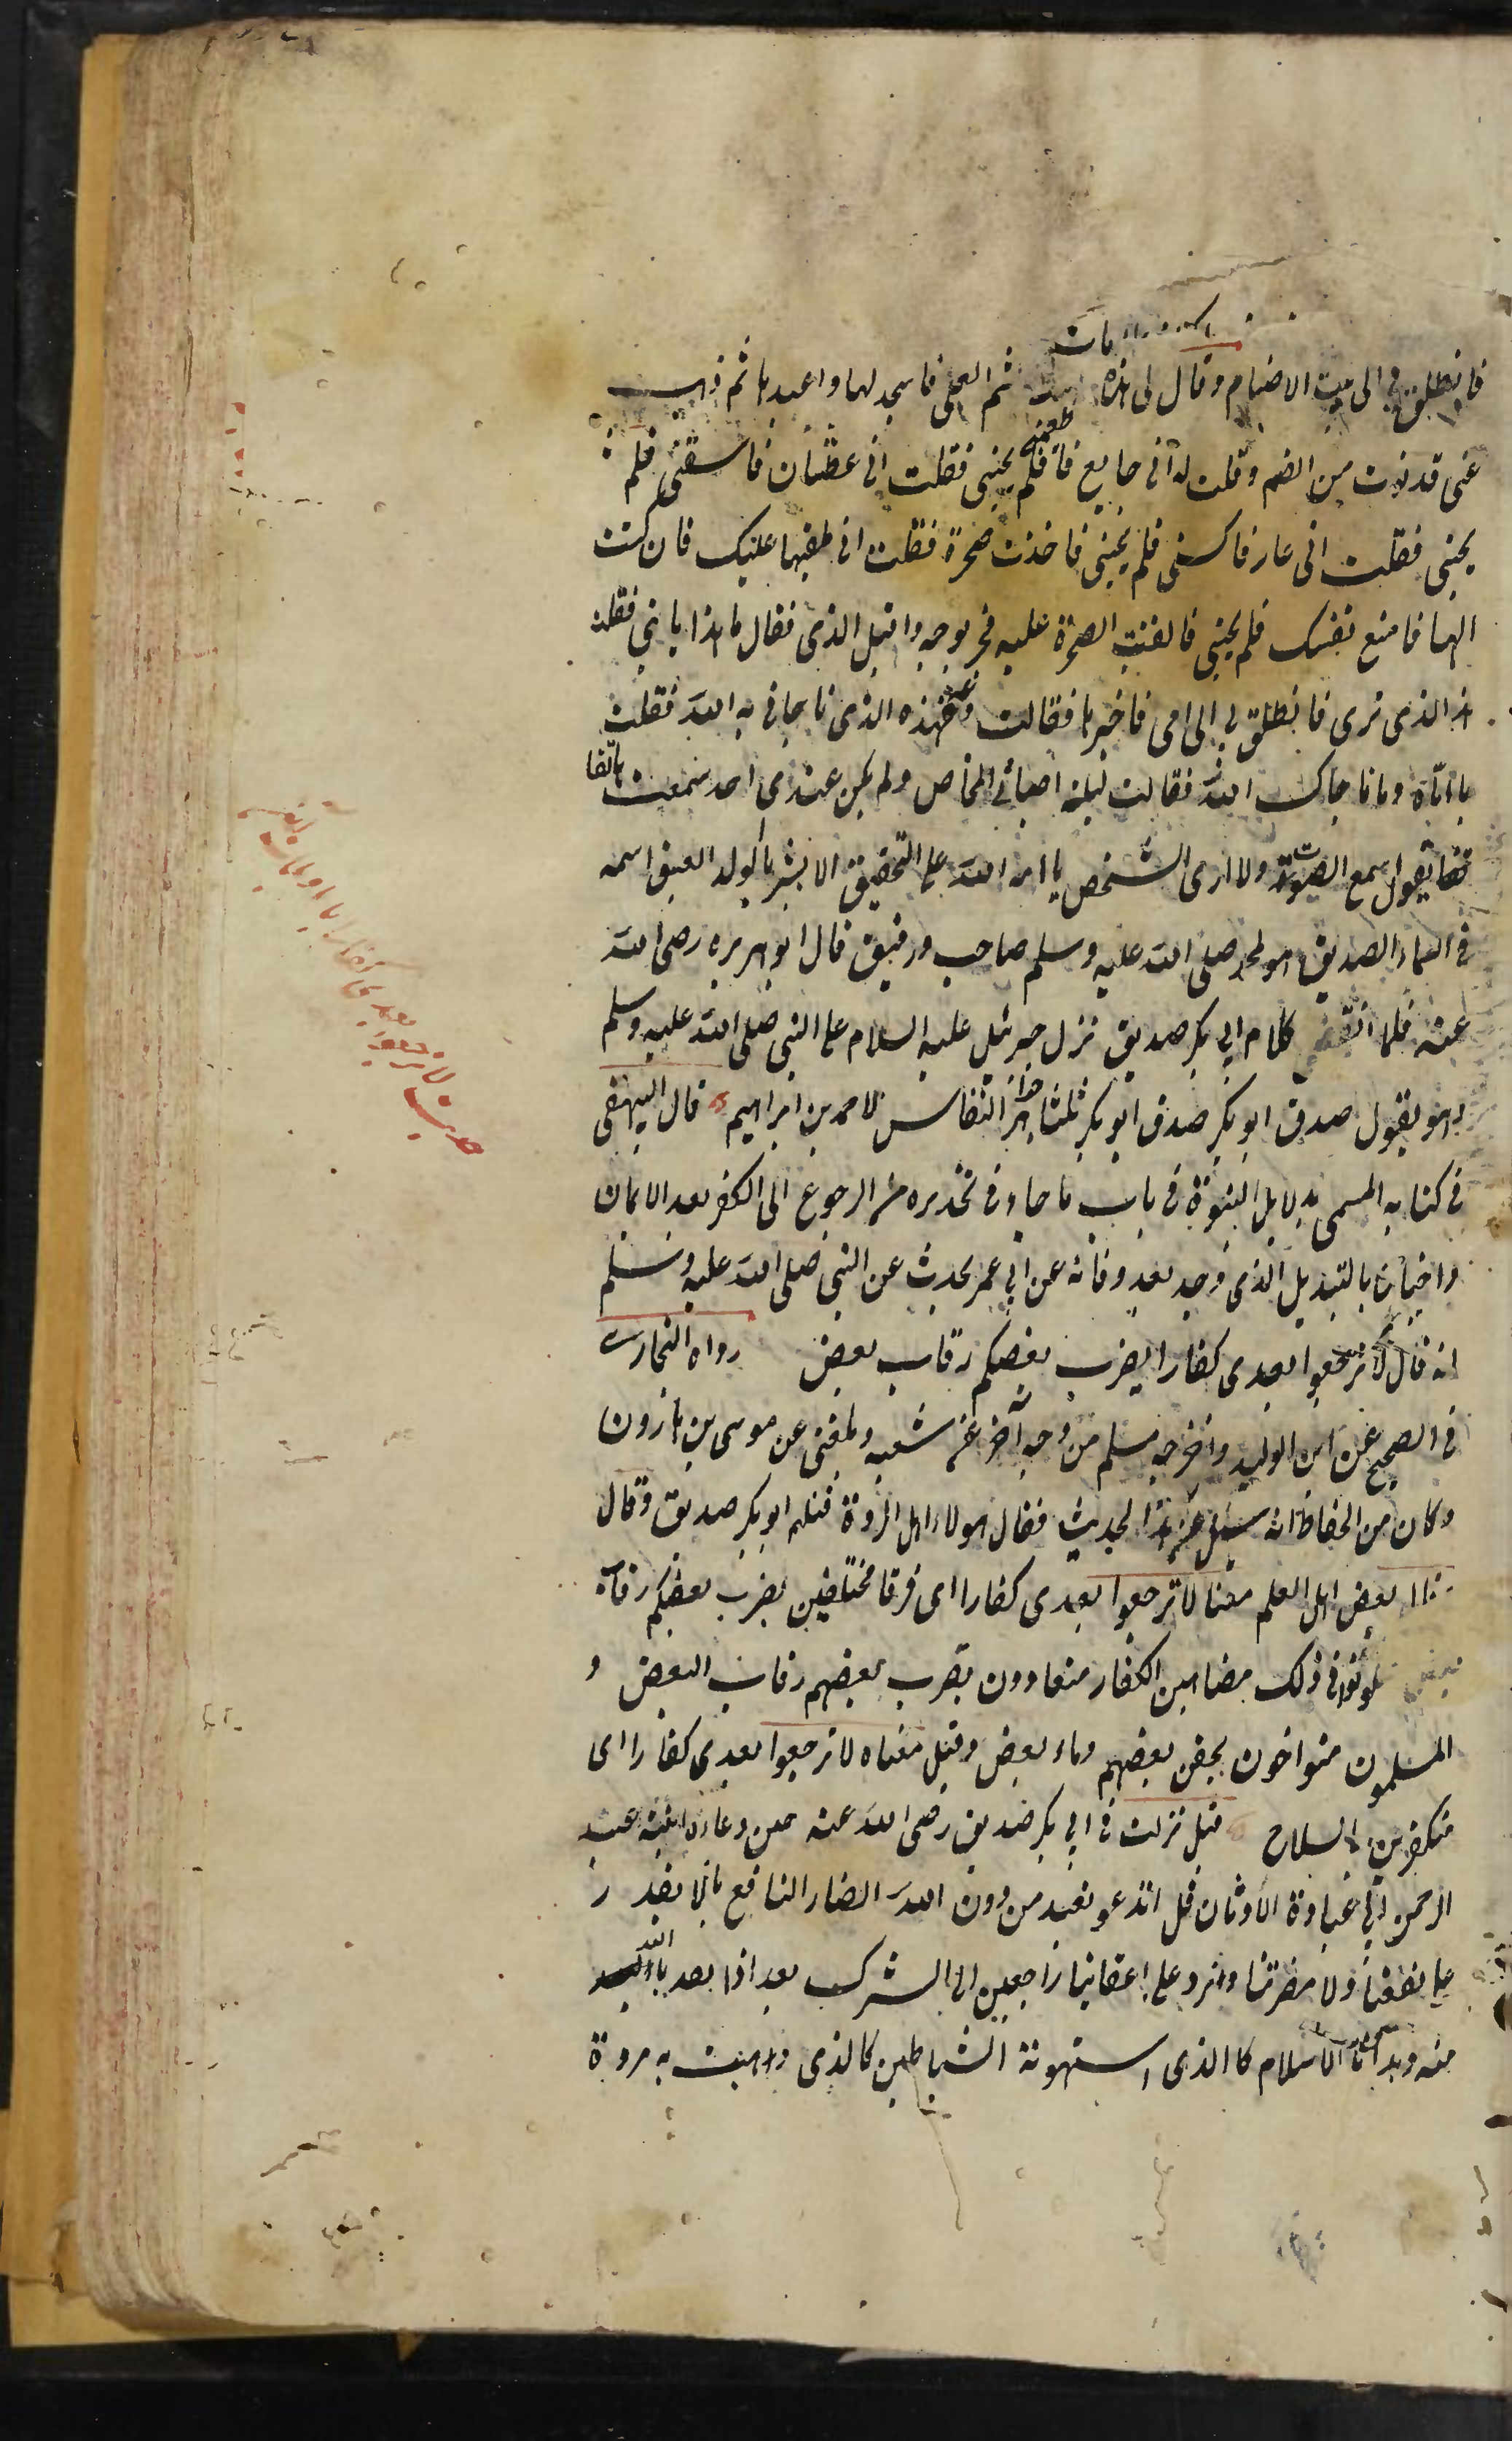 فانطلق بى الى بيت الاصنام وقال لى هذه ثم العلى فاسجد لها واعبدها ثم ذهب
عنى فدنوت من الصنم وقلت له انى جايع فاطعمنى فلم يجبنى فقلت انى عطشان فاسقنى فلم
يجبنى فقلت انى عار فاكسنى فلم يجبنى فاخذت صخرة فقلت انى ملقيها عليك فان كنت
الها فامنع نفسك فلم يجبنى فالقيت الصخرة عليه فخر بوجهه واقبل الذى فقال ما هذا يا بنى فقلت
هذا الذى ترى فانطلق بى الى امى فاخبرها فقالت دعه فهذه الذى ناجانى به الله فقلت
يا اماه وما ناجاك الله فقالت ليلة اصابنى المخاض ولم يكن عندى احد سمعت هاتفا
يقول اسمع الصوت ولا ارى الشخص يا امة الله على التحقيق الا بشر بالولد العتيق اسمه
فى السماء الصديق هو لمحمد صلى الله عليه وسلم صاحب ورفيق قال ابو هريره رضى الله
عنه فلما انقضى كلام ابى بكر صديق نزل جبرئيل عليه السلام على النبى صلى الله عليه وسلم
وهو يقول صدق ابو بكر صدق ابو بكر ثلثا هذا النفائس لاحمد بن ابراهيم قال البيهقى
فى كتابه المسمى بدلايل النبوة فى باب ما جاء فى تحذيره من الرجوع الى الكفر بعد الايمان
واخبارنا بالتبديل الذى وجد بعد وفاته عن ابى عمر يحدث عن النبى صلى الله عليه وسلم
انه قال لا ترجعوا بعدى كفارا يضرب بعضكم رقاب بعض رواه البخارى
فى الصحيح عن ابى الوليد واخرجه مسلم من وجه آخر عن شعبه وبلغنى عن موسى بن هارون
وكان من الحفاظ انه سئل عن هذا الحديث فقال هولاء اهل الردة قتلهم ابو بكر صديق وقال
بعض اهل العلم معنا لا ترجعوا بعدى كفارا اى فرقا مختلفين يضرب بعضكم رقاب
بعض فى ذلك مضاهين الكفار متعادون يضرب بعضهم رقاب البعض و
المسلمون متواخون يحقن بعضهم دماء بعض وقيل معناه لا ترجعوا بعدى كفارا اى
متكفرين بالسلاح قيل نزلت فى ابى بكر صديق رضى الله عنه حين دعاه ابنه عبد
الرحمن الى عبادة الاوثان قل اندعو نعبد من دون الله الضار النافع ما لا يقدر
على نفعنا ولا مضرتنا ونرد على اعقابنا راجعين الى الشرك بعد اذ الله
منه وهدانا الاسلام كالذى استهوته الشياطين كالذى وهبت به مردة
حديث لا ترجعوا بعدى كفارا